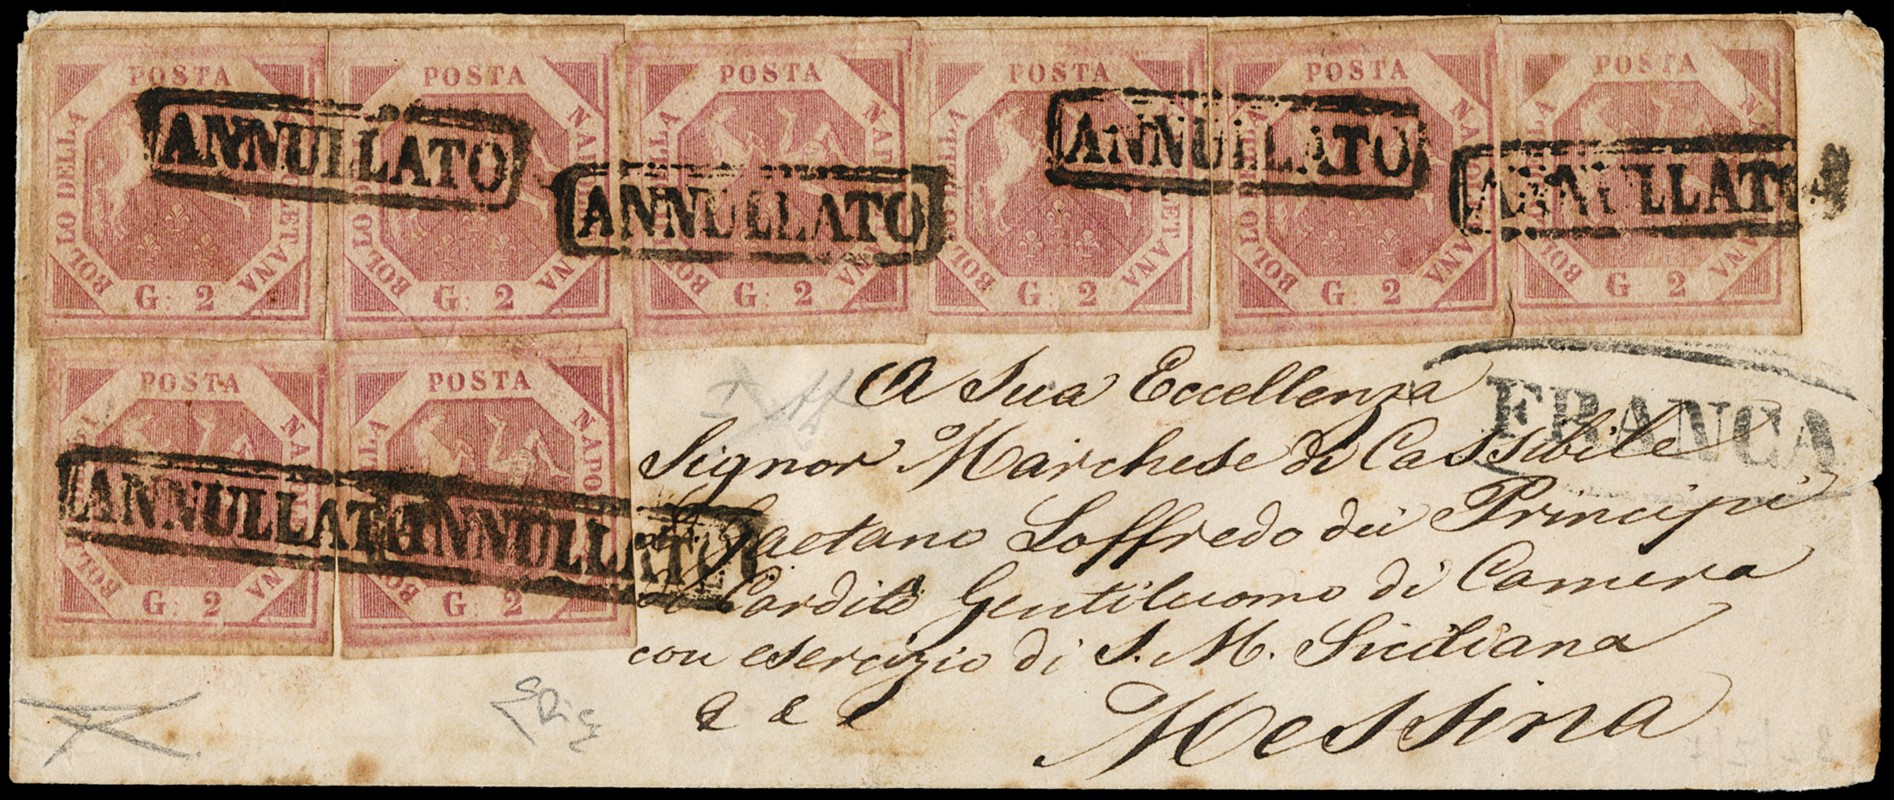 POSTA NAPOLETANA BOLLO DELLA G: 2
POSTA NAPOLETANA BOLLO DELLA G: 2
POSTA NAPOLETANA BOLLO DELLA G: 2
POSTA NAPOLETANA BOLLO DELLA G: 2
POSTA NAPOLETANA BOLLO DELLA G: 2
POSTA NAPOLETANA BOLLO DELLA G: 2
ANNULLATO
ANNULLATO
ANNULLATO
ANNULLATO
POSTA NAPOLETANA BOLLO DELLA G: 2
POSTA NAPOLETANA BOLLO DELLA G: 2
ANNULLATO
ANNULLATO
FRANCA
A Sua Eccellenza
Signor Marchese di Cassibile
Gaetano Loffredo dei Principi
di Cardito Gentiluomo di Camera
con esercizio di S. M. Siciliana
Messina